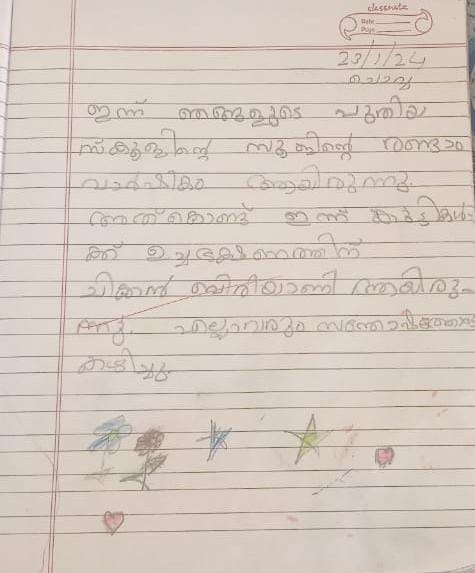 classmate
Date
Page
23/1/24
ചൊവ്വ
ഇന്ന് ഞങ്ങളുടെ പുതിയ
സ്കൂളിന്റെ സ്കൂളിന്റെ രണ്ടാം
വാർഷികം ആയിരുന്നു.
അത്കൊണ്ട് ഇന്ന് കുട്ടികൾ-
ക്ക് ഉച്ചഭക്ഷണത്തിന്
ചിക്കൻ ബിരിയാണി ആയിരു-
ന്നു. എല്ലാവരും സന്തോഷത്തോടെ
കഴിച്ചു.